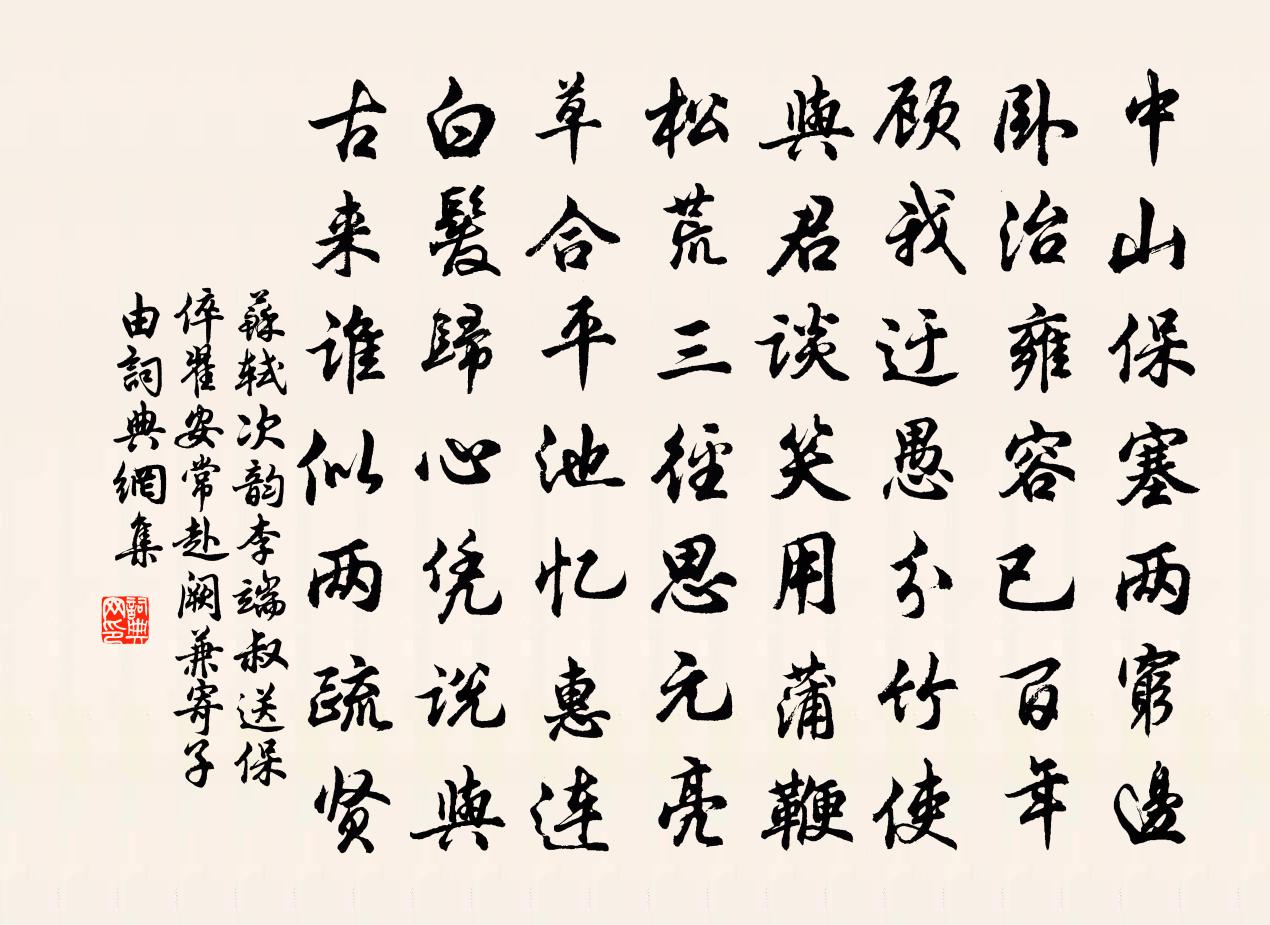 中山保塞兩窮邊
卧治雍容已百年
顾我迂愚分竹使
與君谈笑用蒲鞭
松荒三徑思元亮
草合平池忆惠连
白髮歸心凭说與
古来谁似两疏贤
蘇轼次韵李端叔送保
倅翟安常赴阙兼寄子
由詞典網集
詞典网印